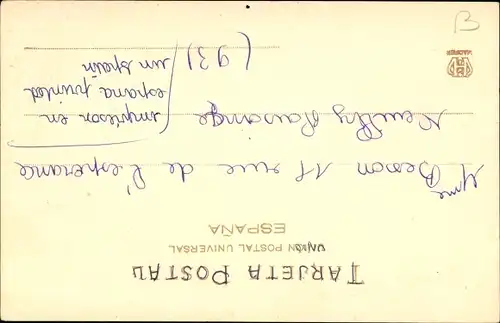 TARJETA POSTAL
UNIÓN POSTAL UNIVERSAL
ESPAÑA
Mme Besson 11 rue de l'esperance
Neuilly Plaisance
(93)
impreson en
espana printed
un spain
B